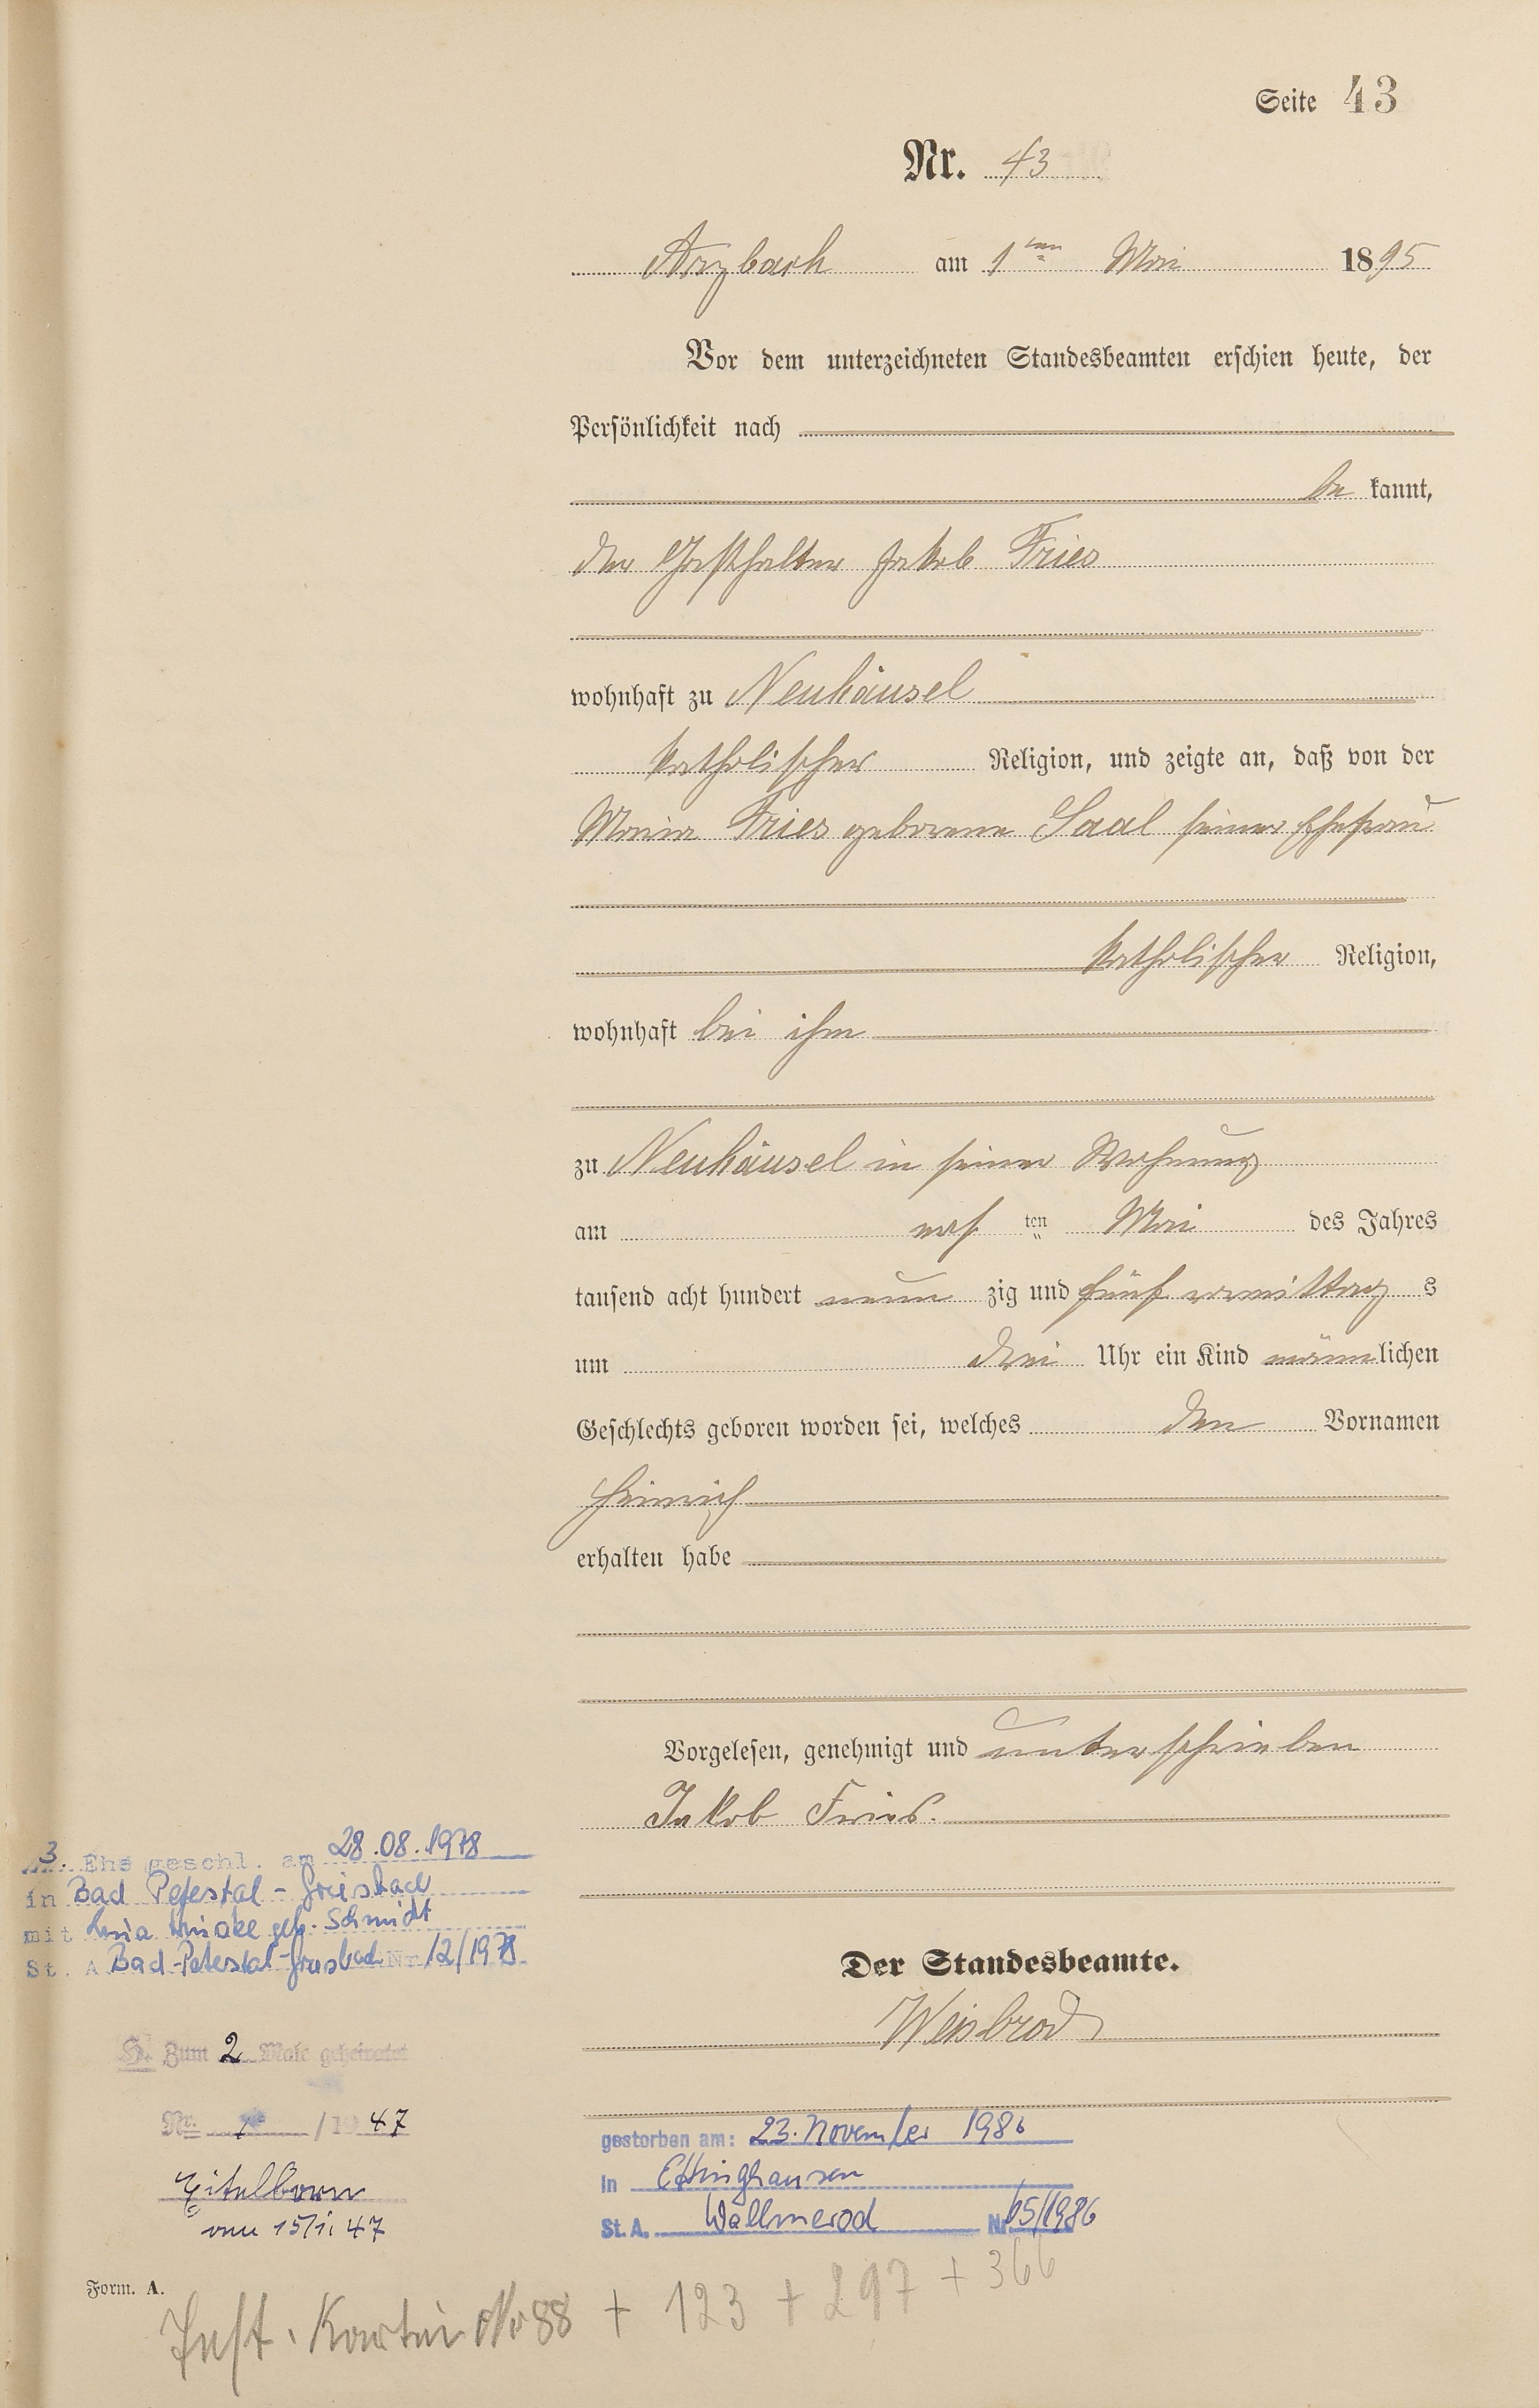 Seite 43
Nr. 43
Arzbach am 1ten Mai 1895
Vor dem unterzeichneten Standesbeamten erschien heute, der
Persönlichkeit nach
be kannt,
der Gasthalter Jakob Fries
wohnhaft zu Neuhäusel
katholischer Religion, und zeigte an, daß von der
Maria Fries geborene Saal seiner Ehefrau
katholischer Religion,
wohnhaft bei ihm
zu Neuhäusel in seiner Wohnung
am ten Mai des Jahres
tausend acht hundert neun zig und fünf vormittag s
um drei Uhr ein Kind männlichen
Geschlechts geboren worden sei, welches den Vornamen
Heinrich
erhalten habe
Vorgelesen, genehmigt und unterschrieben
Jakob Fries.
Der Standesbeamte.
Weisbrod
3. Ehe geschl. am 28.08.1978
in Bad Petestal - Griesbach
mit geb. Schmidt
St. A. Bad-Peterstal-Griesbach Nr. 12/1978
H. Zum 2 Male geheiratet
Nr. 1 / 1947
Eitelborn
vom 15/1. 47
gestorben am: 23. November 1986
in Ettinghausen
St. A. Wallmerod Nr. 65/1986
Form. A.
No 88 + 123 + 297 + 366